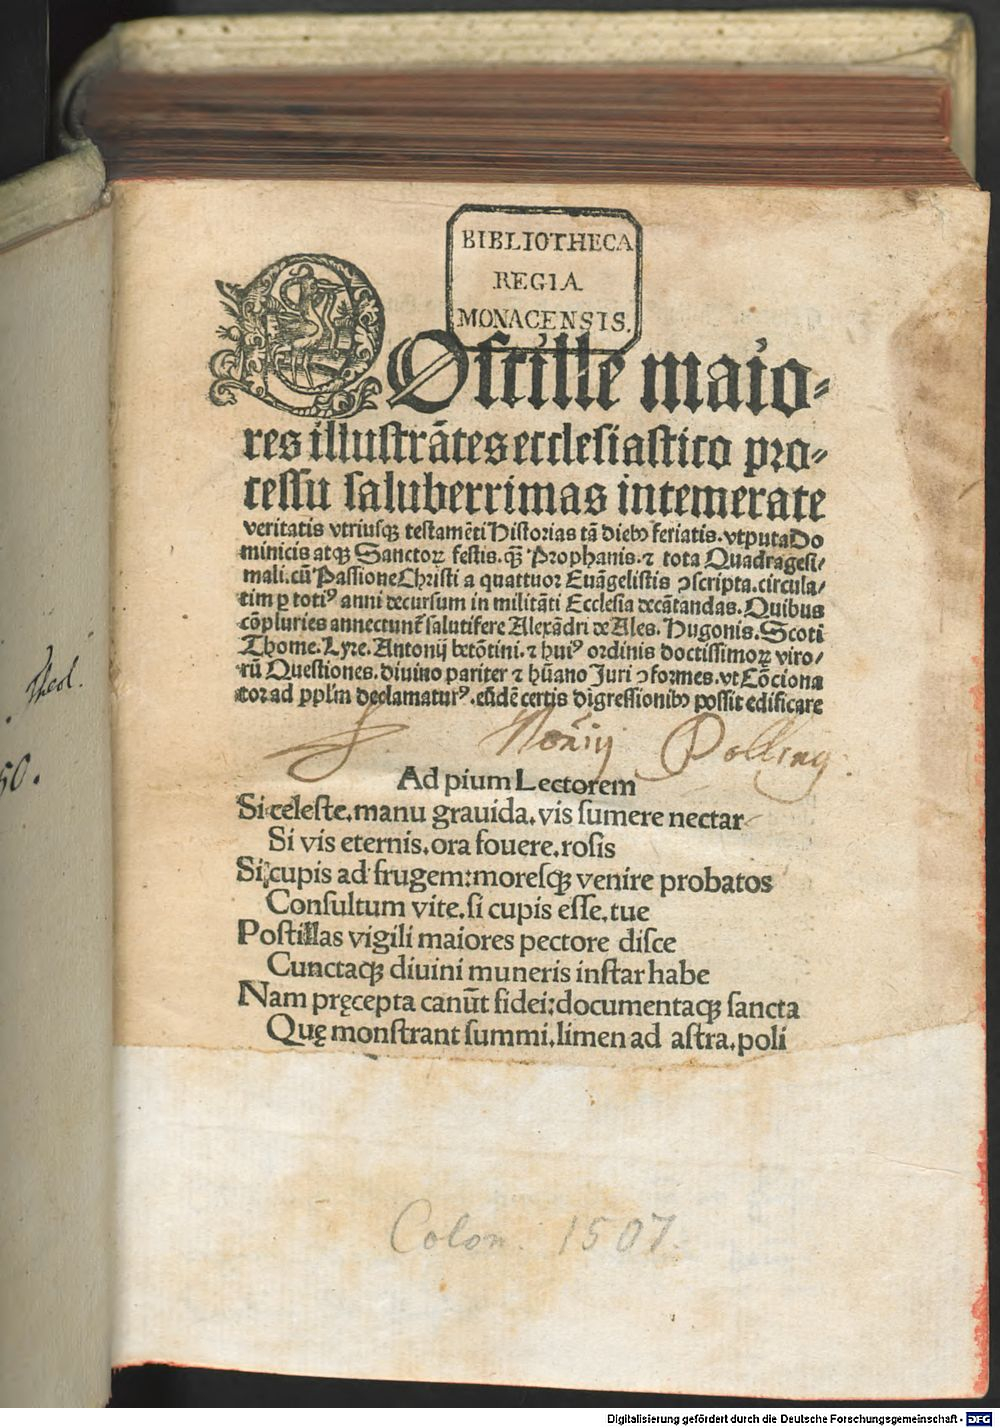 BIBLIOTHECA
REGIA
MONACENSIS.
Oſtille maio⸗
res illuſtrātes eccleſiaſtico pro⸗
ceſſu ſaluberrimas intemerate
veritatis vtriuſqꝫ teſtamēti Hiſtorias tā diebꝰ feriatis. vtputa Do
minicis atqꝫ Sanctoꝝ feſtis. qꝫ̄ Prophanis. ⁊ tota Quadrageſi⸗
mali. cū Paſſione Chriſti a quattuor Euāgeliſtis ꝯſcripta. circula⸗
tim ꝑ totiꝰ anni decurſum in militāti Eccleſia decātandas. Quibus
cōpluries annectunt᷑ ſalutifere Alexādri de Ales. Hugonis. Scoti
Thome. Lyre. Antonij betōtini. ⁊ huiꝰ ordinis doctiſſimoꝝ viro⸗
rū Queſtiones. diuino pariter ⁊ hūano Juri ꝯformes. vt Cōciona
tor ad ppl̄m declamaturꝰ. eūdē certis digreſſionibꝰ poſſit edificare
Polling.
Ad pium Lectorem
Si celeſte, manu grauida, vis ſumere nectar
Si vis eternis, ora fouere, roſis
Si, cupis ad frugem: moreſqꝫ venire probatos
Conſultum vite, ſi cupis eſſe, tue
Poſtillas vigili maiores pectore diſce
Cunctaqꝫ diuini muneris inſtar habe
Nam pręcepta canūt fidei: documentaqꝫ ſancta
Quę monſtrant ſummi, limen ad aſtra, poli
Colon. 1507.
Theol.
50.
Digitalisierung gefördert durch die Deutsche Forschungsgemeinschaft - DFG